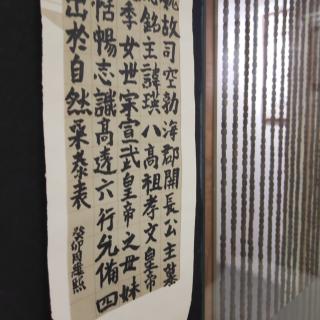 魏故司空勃海郡開長公主墓
誌銘主諱瑛八高祖孝文皇帝
季女世宗宣武皇帝之世妹
恬暢志識高遠六行允備四
出於自然桑泰表
癸卯